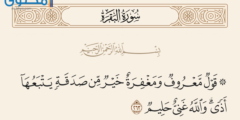 محتوى
سُورَةُ البَقَرَةِ
بِسْمِ اللَّهِ الرَّحْمَنِ الرَّحِيمِ
قَوْلٌ مَّعْرُوفٌ وَمَغْفِرَةٌ خَيْرٌ مِّن صَدَقَةٍ يَتْبَعُهَا
أَذًى وَاللَّهُ غَنِيٌّ حَلِيمٌ ٢٦٣